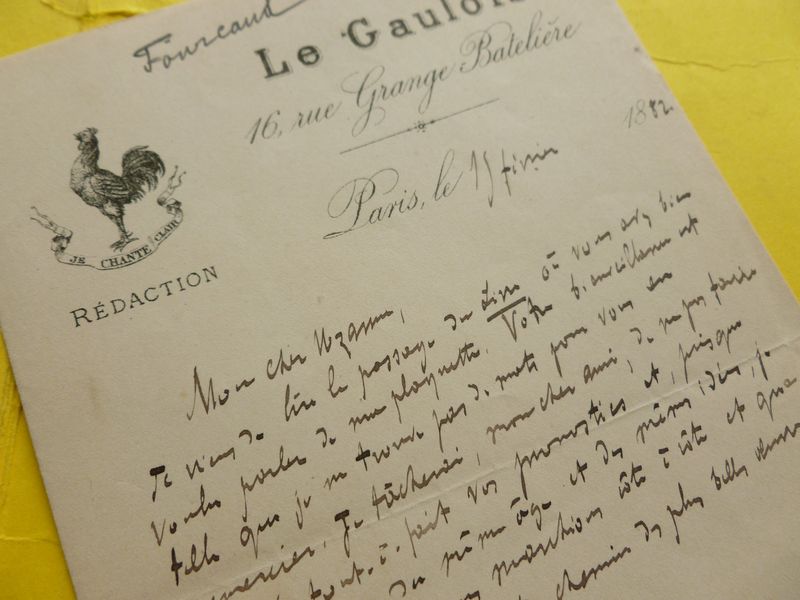 Fourcaud
Le Gaulois
16, rue Grange Batelière
Paris, le 15 février 1882
JE CHANTE CLAIR
RÉDACTION
Mon cher Uzanne,
Je viens de lire le passage du Livre où vous avez bien
voulu parler de ma plaquette. Votre bienveillance est
telle que je ne trouve pas de mots pour vous en
remercier. Je tâcherai, mon cher ami, de ne pas faire
tout-à-fait vos pronostics et, puisque
du même âge et des mêmes idées, je
marchions côte à côte et que
chemin des plus belles